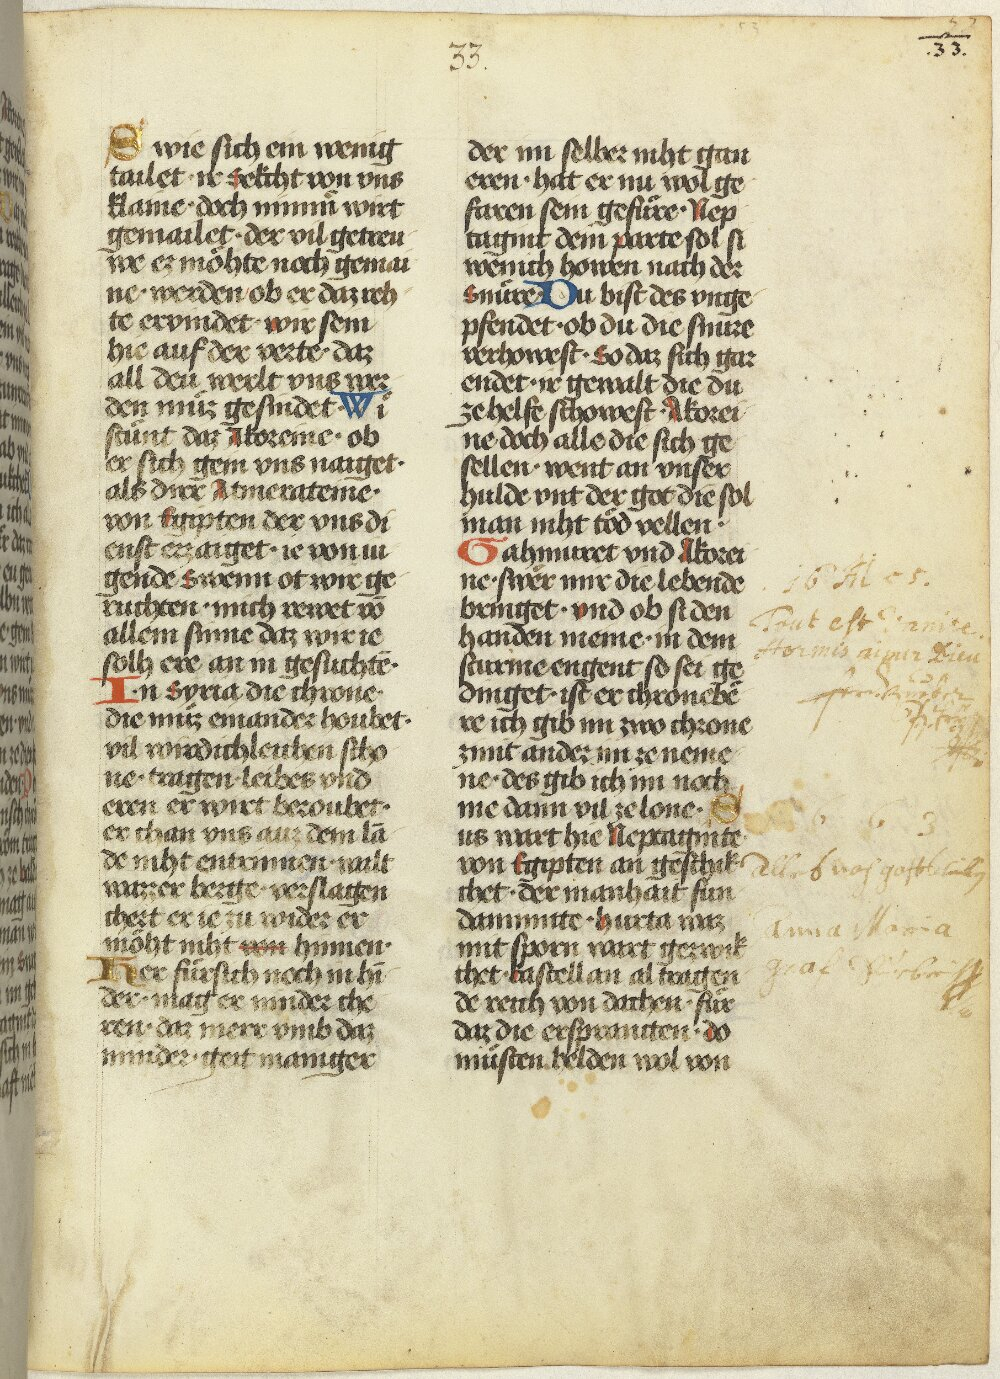 33.
.33.
Swie sich ein wenig
tailet · ir selicht von vns
klaine · doch nimm̄ wirt
gemailet · der vil getreu
we er möhte noch gemai
ne · werden ob er daz reh
te ervindet · wir sein
hie auf der verte · daz
all deu werlt vns wer
den müz gesindet · Wi
stünt daz Akoreine · ob
er sich gein vns naiget ·
als dirr Atmerateine ·
von Egipten der vns di
enst erzaiget · ie von iu
gende Swenn ot wir ge
ruchten · mich rewet vō
allem sinne daz wir ie
solh ere an in gesuchtē ·
In Syria die chrone ·
die müz einander houbet ·
vil wirdichleuben scho
ne · tragen · leibes vnd
eren er wirt beroubet ·
er chan vns auz dem lā
de niht entrinnen · walt
wazzer berge · verslagen
chert er ie zu wider er
möht niht von hinnen ·
Her fürsich noch in hī
der · mag er minder che
ren · daz merr vmb daz
minder · geit maniger
der im selber niht gan
eren · hat er nu wol ge
faren sein gefüre · Nep
tagint dein parte sol si
wēnich howen nach der
snüre · Du bist des vnge
pfendet · ob du die snüre
verhowest · So daz sich gar
endet · ir gewalt die du
ze helfe schowest · Akorei
ne doch alle die sich ge
sellen · went an vnser
hulde vnt der got die sol
man niht töd vellen ·
Gahmuret vnd Akorei
ne · swer mir die lebende
bringet · vnd ob si den
handen meine · in dem
sturme engent so sei ge
dinget · ist er chronebē
re ich gib im zwo chrone
zmit ander im ze neme
ne · des gib ich im noch
me dann vil ze lone · S
us wart hie Neptaginte ·
von Egipten an geschik
chet · der manhait fun
daminte · hurta waz
mit sporn wart gezwik
chet · kastellan al tragen
de reich von dachen · für
daz die ersprancten · do
müsten helden wol von
Anna Maria